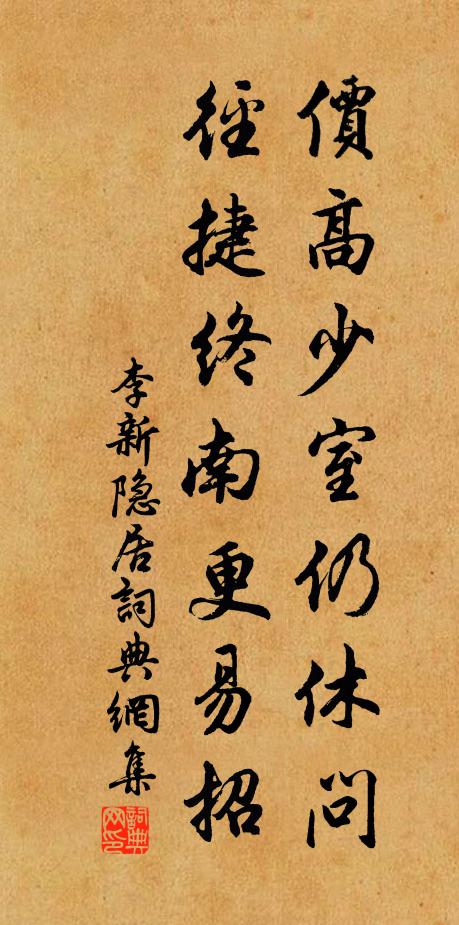 價高少室仍休問
徑捷終南更易招
李新隐居詞典網集
詞典网印